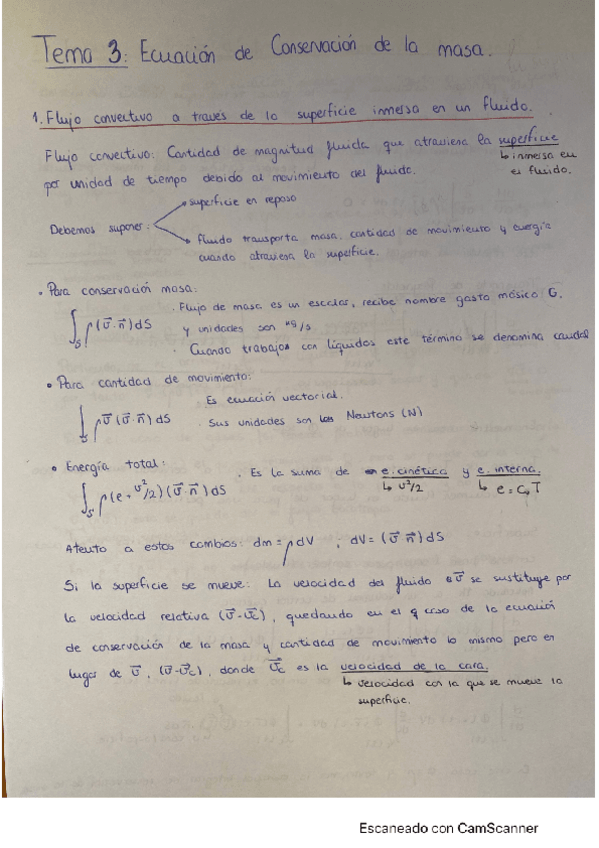 Tema 3: Ecuación de Conservación de la masa.
1. Flujo convectivo a través de la superficie inmersa en un fluido.
Flujo convectivo: Cantidad de magnitud fluida que atraviesa la superficie
↳ inmersa en
el fluido.
por unidad de tiempo debido al movimiento del fluido.
Debemos suponer:
superficie en reposo
fluido transporta masa, cantidad de movimiento y energía
cuando atraviesa la superficie.
• Para conservación masa:
∫s ρ(v⃗·n⃗)dS
. Flujo de masa es un escalar, recibe nombre gasto másico G.
y unidades son kg/s
. Cuando trabajos con líquidos este término se denomina caudal
• Para cantidad de movimiento:
∫ ρv⃗(v⃗·n⃗)dS
. Es ecuación vectorial.
. Sus unidades son los Newtons (N)
• Energía total:
∫s ρ(e + v²/2)(v⃗·n⃗)dS
. Es la suma de e. cinética y e. interna.
↳ v²/2 ↳ e = CvT
Atento a estos cambios: dm = ρdV ; dV = (v⃗·n⃗)dS
Si la superficie se mueve: La velocidad del fluido v⃗ se sustituye por
la velocidad relativa (v⃗-v⃗c), quedando en el caso de la ecuación
de conservación de la masa y cantidad de movimiento lo mismo pero en
lugar de v⃗, (v⃗-v⃗c), donde v⃗c es la velocidad de la cara.
↳ velocidad con la que se mueve la
superficie.
Escaneado con CamScanner